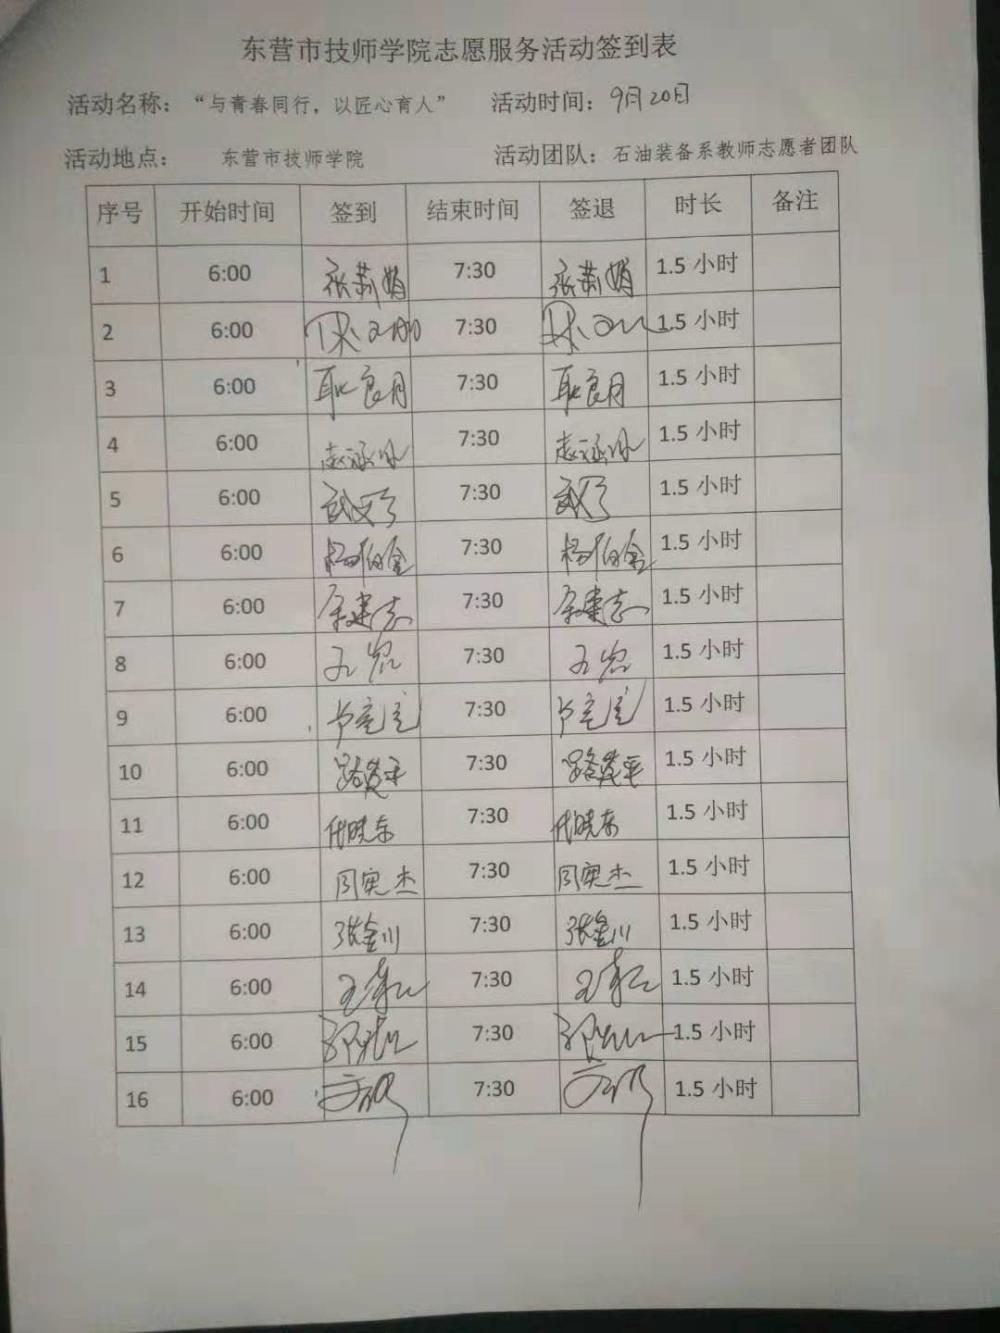 东营市技师学院志愿服务活动签到表
活动名称：“与青春同行，以匠心育人” 活动时间：9月20日
活动地点： 东营市技师学院 活动团队：石油装备系教师志愿者团队
序号 开始时间 签到 结束时间 签退 时长 备注
1 6:00 张莉娟 7:30 张莉娟 1.5 小时
2 6:00 7:30 1.5 小时
3 6:00 耿良月 7:30 耿良月 1.5 小时
4 6:00 7:30 1.5 小时
5 6:00 7:30 1.5 小时
6 6:00 杨伯金 7:30 杨伯金 1.5 小时
7 6:00 余建志 7:30 余建志 1.5 小时
8 6:00 7:30 1.5 小时
9 6:00 7:30 1.5 小时
10 6:00 7:30 1.5 小时
11 6:00 代晓东 7:30 代晓东 1.5 小时
12 6:00 周奥杰 7:30 周奥杰 1.5 小时
13 6:00 张金川 7:30 张金川 1.5 小时
14 6:00 7:30 1.5 小时
15 6:00 7:30 1.5 小时
16 6:00 7:30 1.5 小时